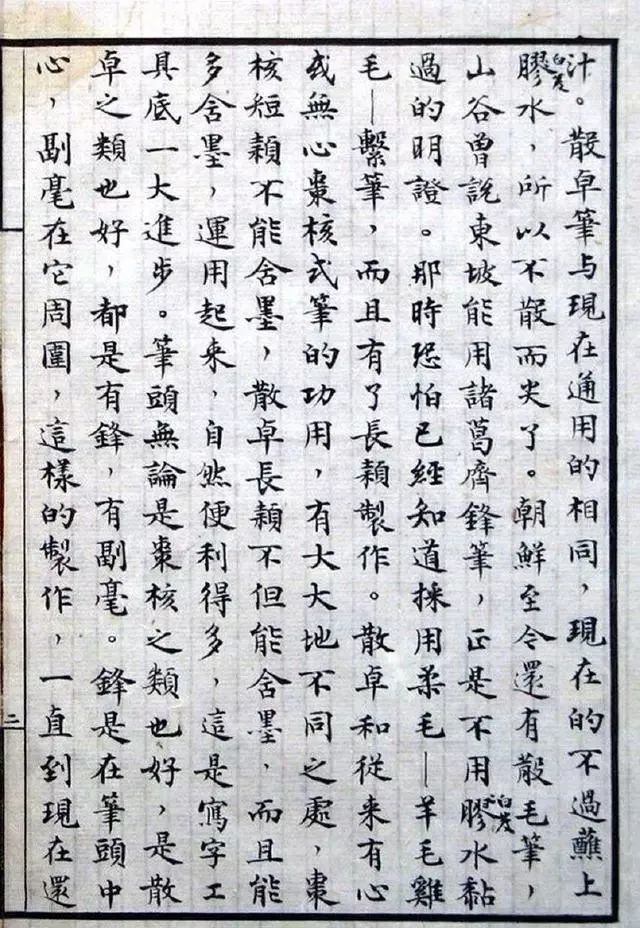 汁。散卓筆与現在通用的相同，現在的不過蘸上
白芨
膠水，所以不散而尖了。朝鮮至今還有散毛筆，
山谷曾說東坡能用諸葛齊鋒筆，正是不用膠水黏
白芨
過的明證。那時恐怕已經知道採用柔毛—羊毛雞
毛—繫筆，而且有了長穎製作。散卓和從来有心
或無心棗核式筆的功用，有大大地不同之處，棗
核短穎不能含墨，散卓長穎不但能含墨，而且能
多含墨，運用起来，自然便利得多，這是寫字工
具底一大進步。筆頭無論是棗核之類也好，是散
卓之類也好，都是有鋒，有副毫。鋒是在筆頭中
心，副毫在它周圍，這樣的製作，一直到現在還
二